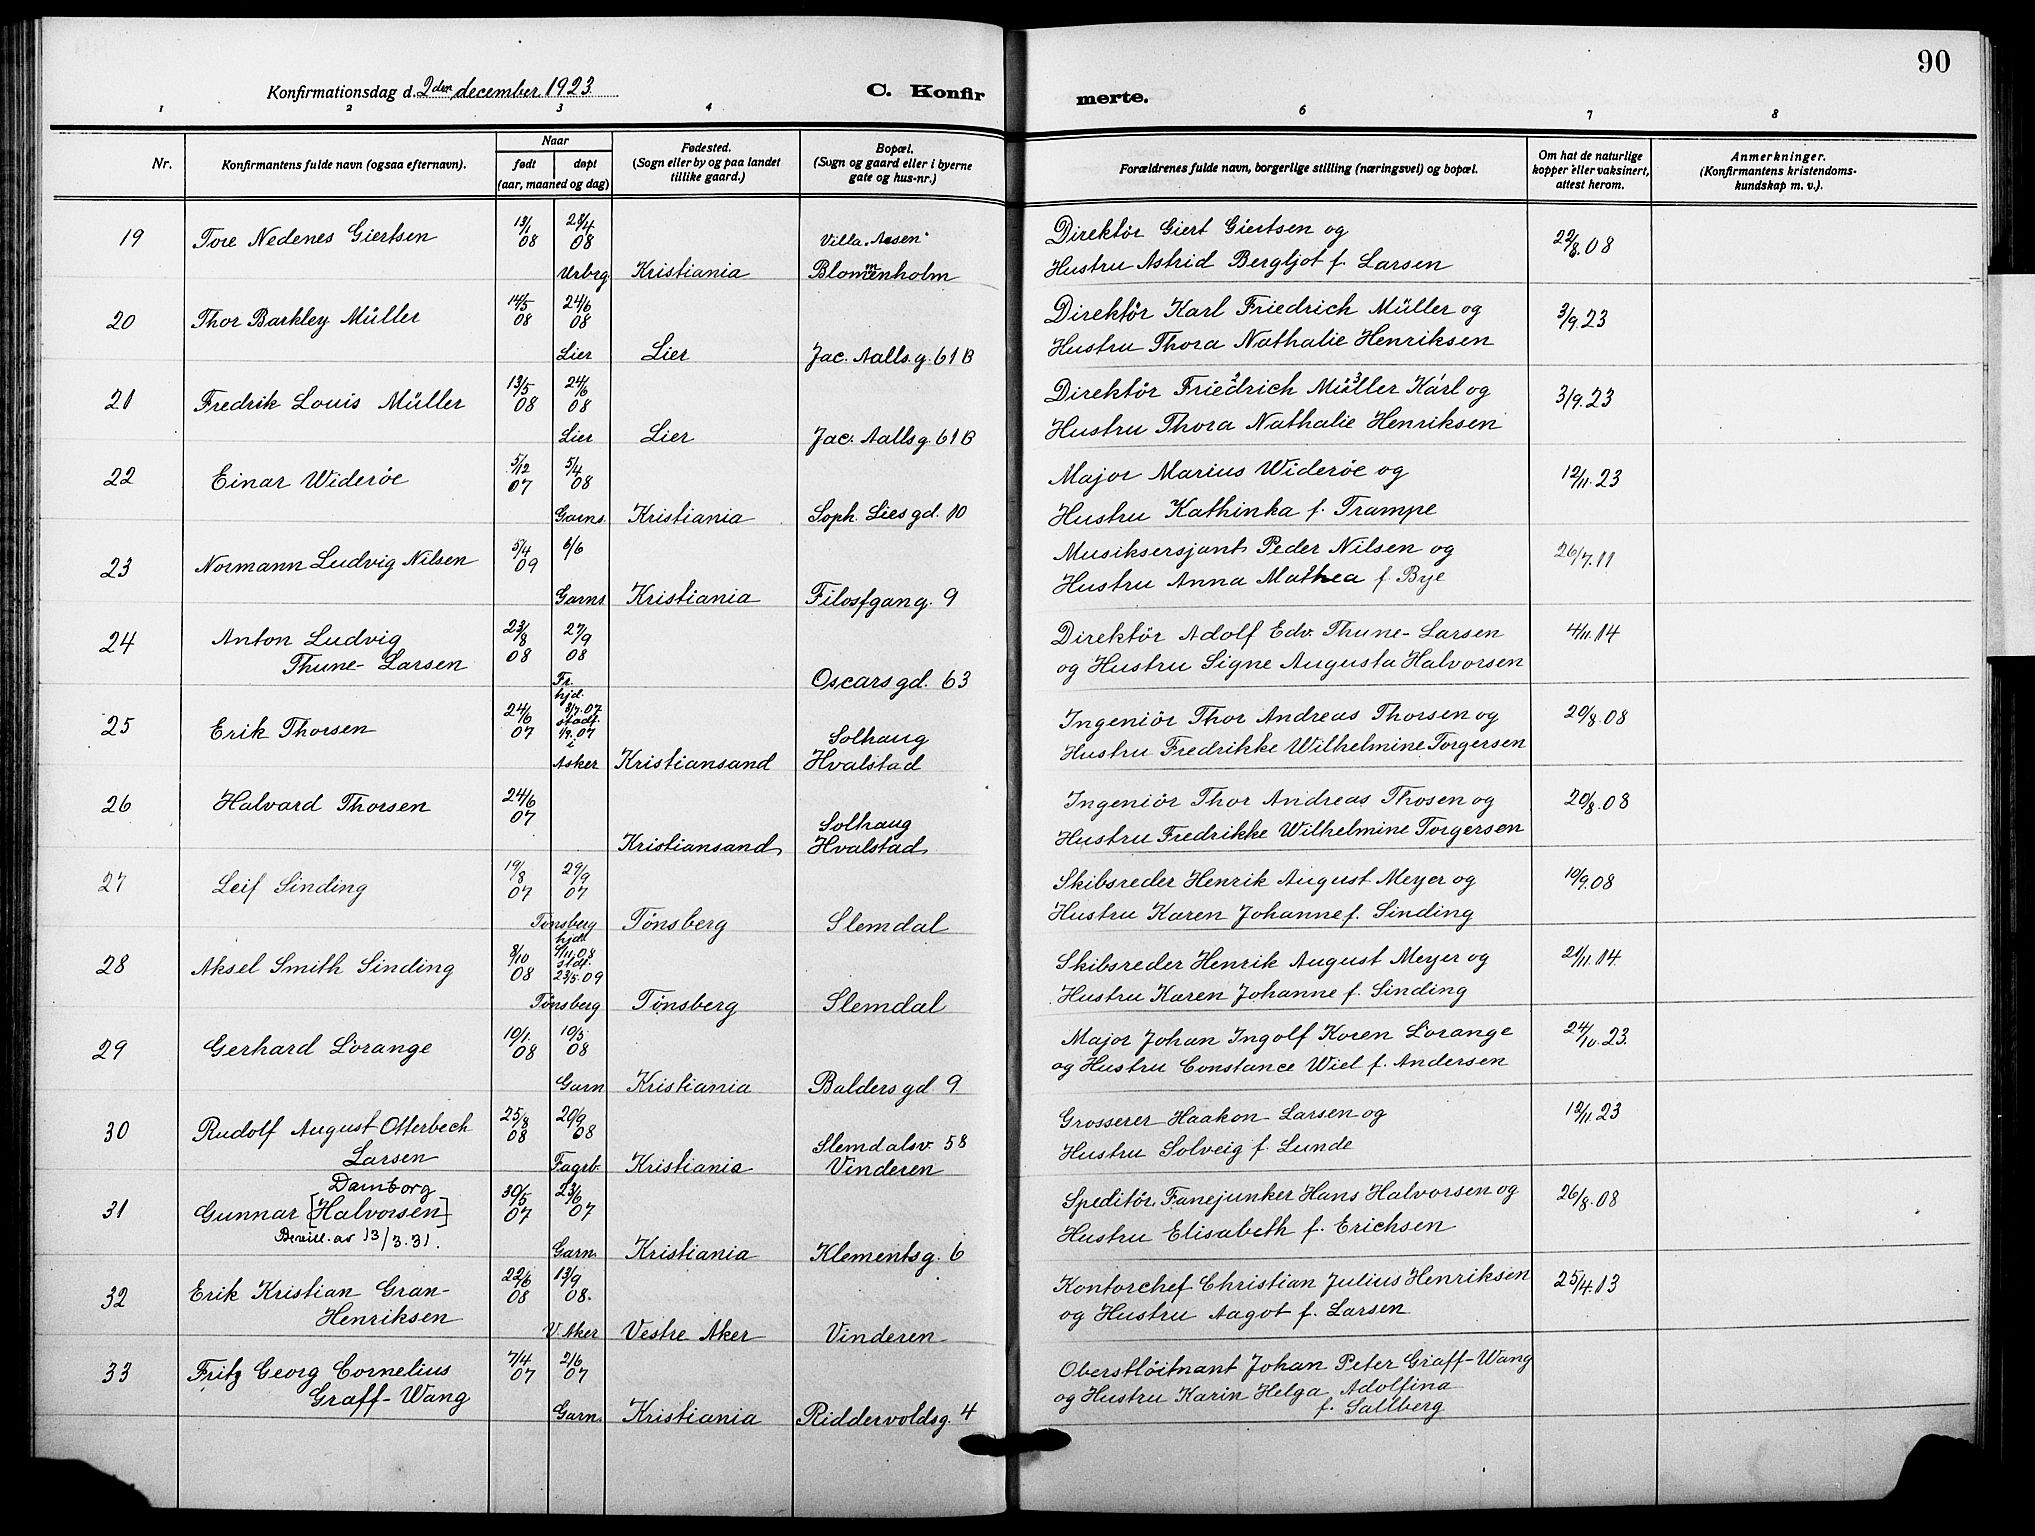 90
Konfirmationsdag d. 2den december 1923.
C. Konfir merte.
1 2 3 4 6 7 8
Nr.
Konfirmantens fulde navn (ogsaa efternavn).
Naar
født
døpt
(aar, maaned og dag)
Fødested.
(Sogn eller by og paa landet
tillike gaard.)
Bopæl.
(Sogn og gaard eller i byerne
gate og hus-nr.)
Forældrenes fulde navn, borgerlige stilling (næringsvei) og bopæl.
Om hat de naturlige
kopper eller vaksinert,
attest herom.
Anmerkninger.
(Konfirmantens kristendoms-
kundskap m. v.).
19 Tore Nedenes Giertsen 13/1 08 28/4 08 Villa "Aasen" Direktör Giert Giertsen og 22/8.08
Urbrg. Kristiania Blommenholm Hustru Astrid Bergljot f. Larsen
20 Thor Barkley Müller 14/5 08 24/6 08 Direktör Karl Friedrich Müller og 3/9.23
Lier Lier Jac. Aalls.g. 61 B Hustru Thora Nathalie Henriksen
21 Fredrik Louis Müller 13/5 08 24/6 08 Direktör Friedrich Müller Karl og 3/9.23
Lier Lier Jac. Aallsg. 61 B Hustru Thora Nathalie Henriksen
22 Einar Wideröe 5/12 07 5/4 08 Major Marius Wideröe og 12/11.23
Garns. Kristiania Soph. Lies gd. 10 Hustru Kathinka f. Trampe
23 Normann Ludvig Nilsen 5/4 09 6/6 Musiksersjant Peder Nilsen og 26/7.11
Garns Kristiania Filosfgang. 9 Hustru Anna Mathea f. Bye
24 Anton Ludvig 23/8 08 27/9 08 Direktör Adolf Edv. Thune-Larsen 4/11.14
Thune-Larsen Fr. Oscars gd. 63 og Hustru Signe Augusta Halvorsen
25 Erik Thorsen 24/6 07 hjd. 3/7.07 stadf. 1/9.07 i Solhaug Ingeniör Thor Andreas Thorsen og 20/8.08
Asker Kristiansand Hvalstad Hustru Fredrikke Wilhelmine Torgersen
26 Halvard Thorsen 24/6 07 Solhaug Ingeniör Thor Andreas Thosen og 20/8.08
Kristiansand Hvalstad Hustru Fredrikke Wilhelmine Torgersen
27 Leif Sinding 19/8 07 29/9 07 Skibsreder Henrik August Meyer og 10/9.08
Tönsberg Tönsberg Slemdal Hustru Karen Johanne f. Sinding
28 Aksel Smith Sinding 8/10 08 hjdt. /11.08 stdf. 23/5.09 Skibsreder Henrik August Meyer og 21/11.14.
Tönsberg Tönsberg Slemdal Hustru Karen Johanne f. Sinding
29 Gerhard L'orange 10/1. 08 10/3 08 Major Johan Ingolf Koren L'orange 24/10.23.
Garn Kristiania Balders gd 9 og Hustru Constance Wiel f. Andersen
30 Rudolf August Otterbech 25/8 08 20/9 08 Slemdalsv. 58 Grosserer Haakon Larsen og 12/11.23
Larsen Fagrb. Kristiania Vinderen Hustru Solveig f. Lunde
Damborg
31 Gunnar [Halvorsen] 30/5 07 23/6 07 Speditör, Fanejunker Hans Halvorsen og 26/8.08
Bevill. av 13/3.31. Garn. Kristiania Klementsg. 6 Hustru Elisabeth f. Erichsen
32 Erik Kristian Gran- 22/6 08 13/9 08. Kontorchef Christian Julius Henriksen 25/4.13
Henriksen V. Aker Vestre Aker Vinderen og Hustru Aagot f. Larsen
33 Fritz Georg Cornelius 7/4 07 2/6 07 Oberstlöitnant Johan Peter Graff-Wang
Graff-Wang Garn. Kristiania Riddervoldsg. 4 og Hustru Karin Helga Adolfina
f. Sallberg